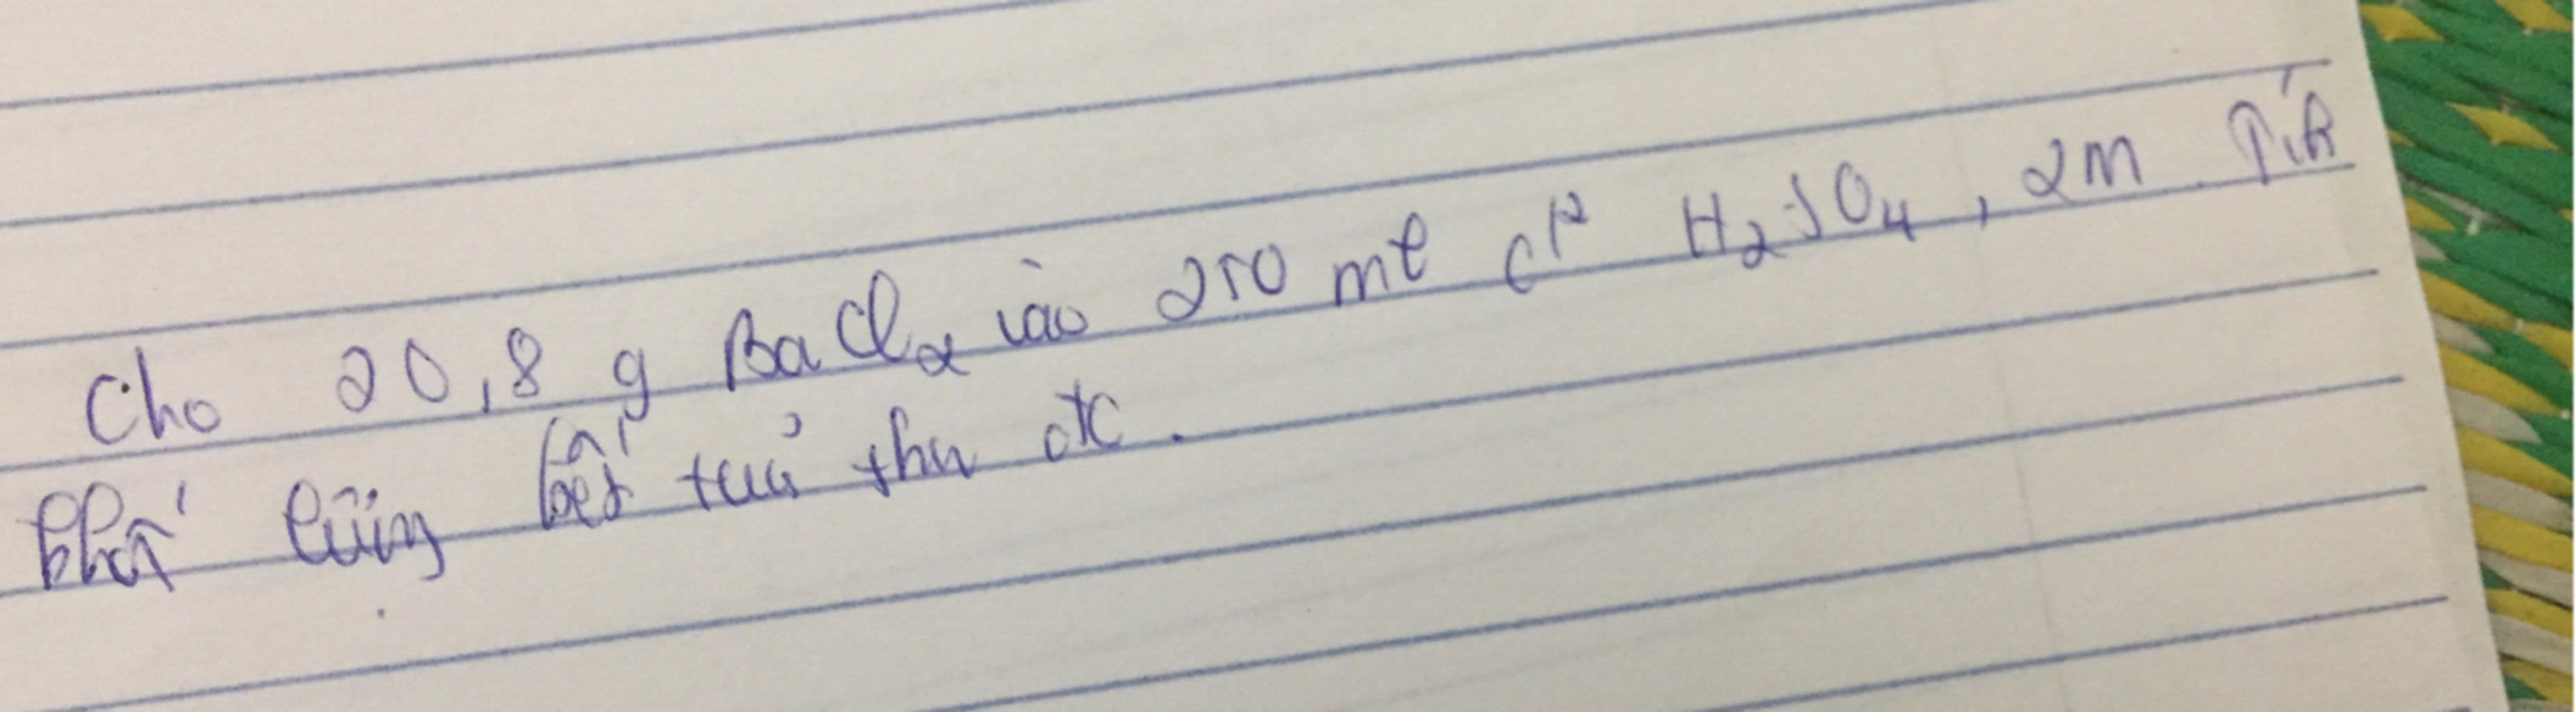 Cho 20,8 g BaCl₂ vào 250 ml d² H₂SO₄, 2M. Tính
khối lượng kết tủa thu đc.